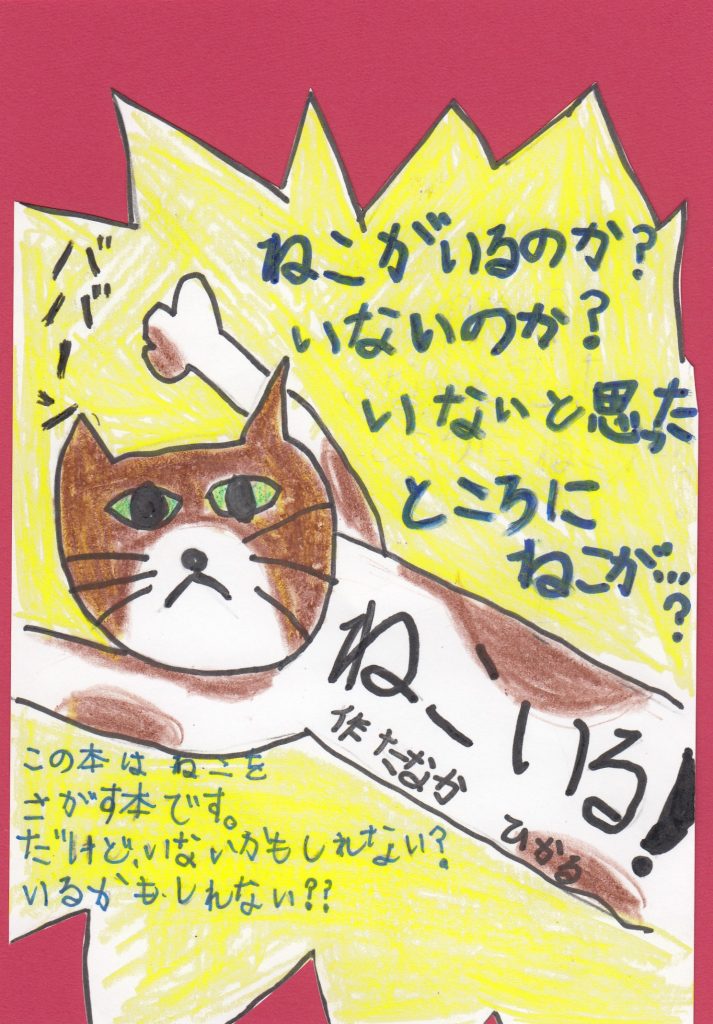 ババーン
ねこがいるのか?
いないのか?
いないと思った
ところに
ねこが…?
ねこいる!
作 たなか ひかる
この本は ねこを
さがす本です。
だけど、いないかもしれない?
いるかもしれない??